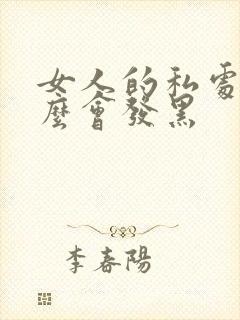 女人的私處
麼會發黑
李春陽